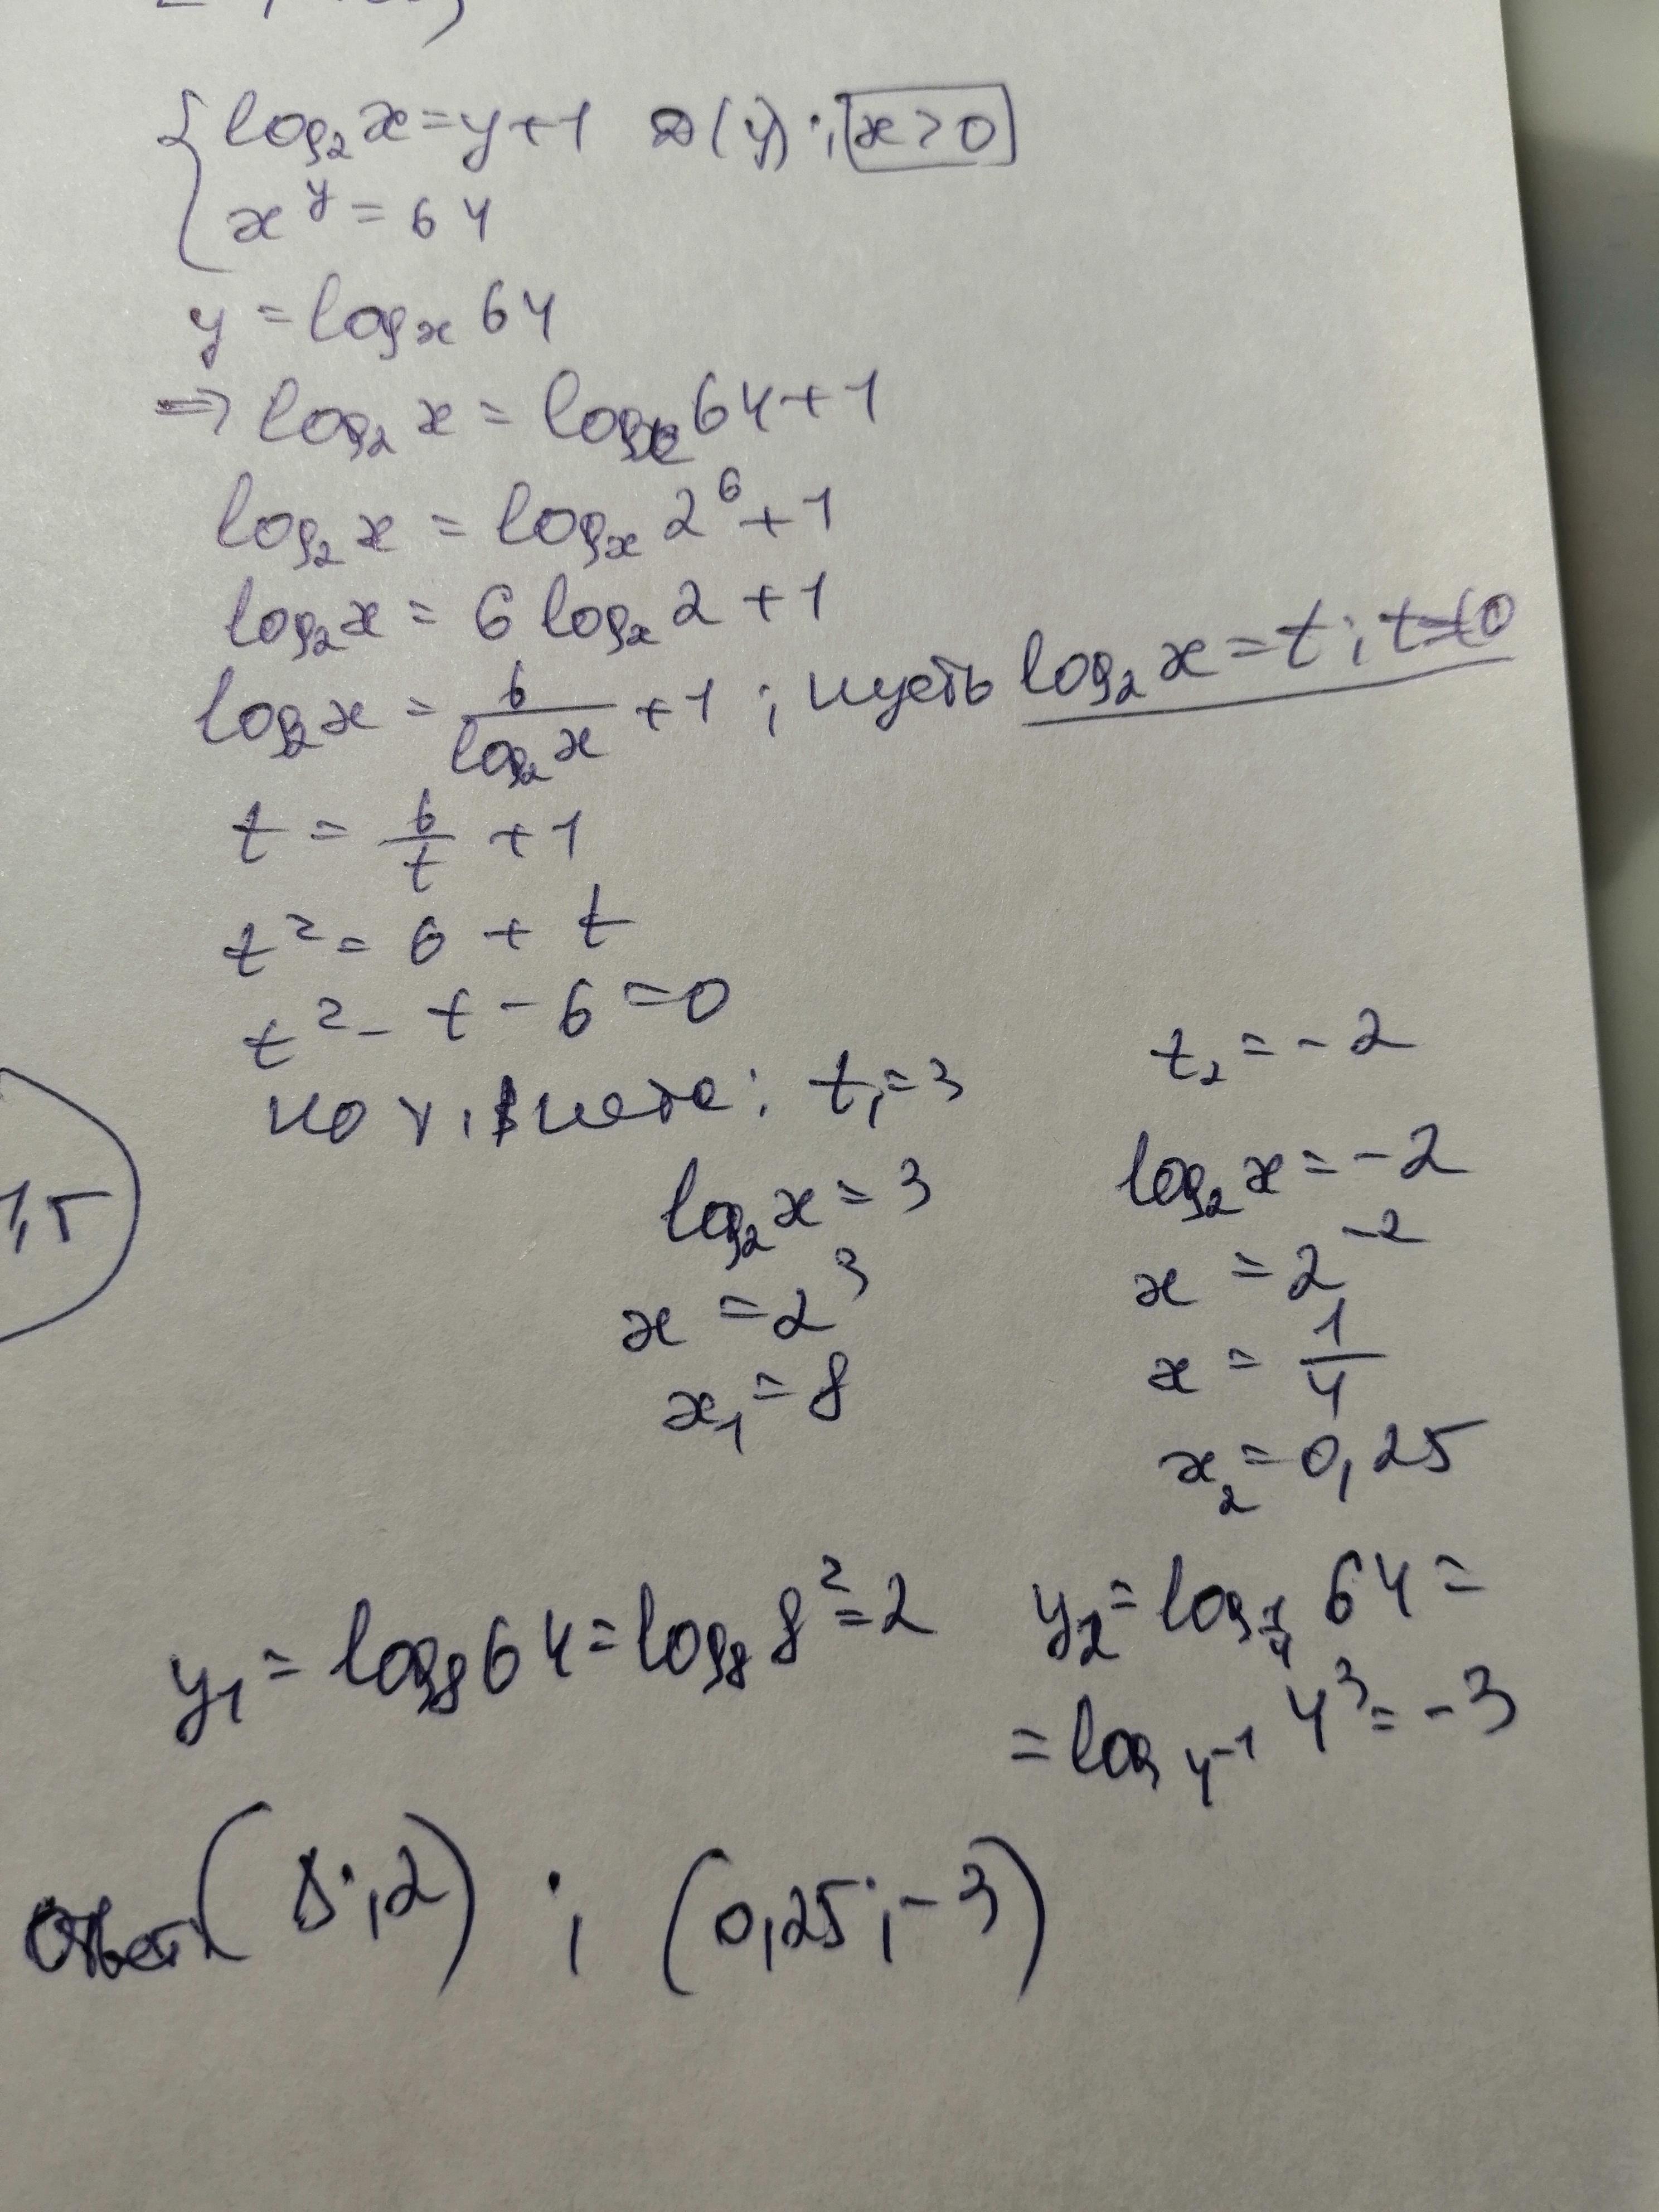 { log₂x = y+1 D(y): x>0
x^y = 64
y = logₓ64
⇒ log₂x = logₓ64+1
log₂x = logₓ2⁶+1
log₂x = 6 logₓ2 + 1
log₂x = 6/log₂x + 1 ; пусть log₂x = t;
t = 6/t + 1
t² = 6 + t
t² - t - 6 = 0
по т. Виета: t₁=3 t₂ = -2
log₂x = 3 log₂x = -2
x = 2³ x = 2⁻²
x₁ = 8 x = 1/4
x₂ = 0,25
1,5
y₁ = log₈64 = log₈8² = 2 y₂ = log_1/4 64 =
= log_4⁻¹ 4³ = -3
Ответ: (8;2) ; (0,25;-3)